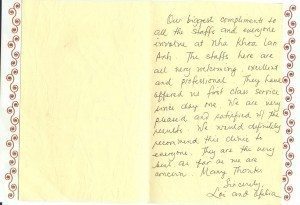 Our biggest compliments to
all the staffs and everyone
involve at Nha Khoa Lan
Anh. The staffs here are
all very welcoming excellent
and professional. They have
offered us first class service
since day one. We are very
pleased and satisfied of the
results. We would definitely
recommend this clinic to
everyone. They are the very
best as far as we are
concern. Many Thanks
Sincerely,
Loi and